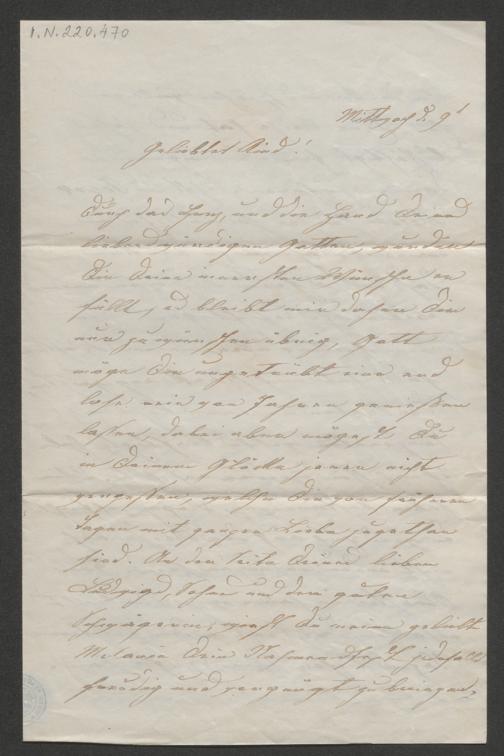 I.N. 220.470
Mittwoch d. 9t
Geliebtes Kind!
Durch das Herz, und die Hand Deines
liebenswürdigen Gatten, wurden
Dir Deine innersten Wünsche er
füllt, es bleibt mir daher Dir
nur zu wünschen übrig, Gott
möge Dir ungetrübt eine end
lose von Jahren genießen
lassen, dabei aber mögest Du
in Deinem Glücke jener nicht
vergessen, welche Dir von früheren
Tagen mit ganzer Liebe zugethan
sind. An der Seite Deines lieben
Ludwigs, Sohne und der guten
Schwägerin, wirst Du meine geliebte
Melanie Dein Nahmensfest jedenfalls
freudig und vergnügt zubringen,